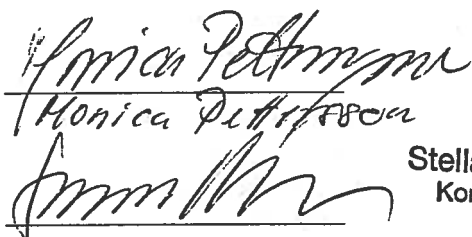 Monica Pettersson
Monica Pettersson
Stella
Kon